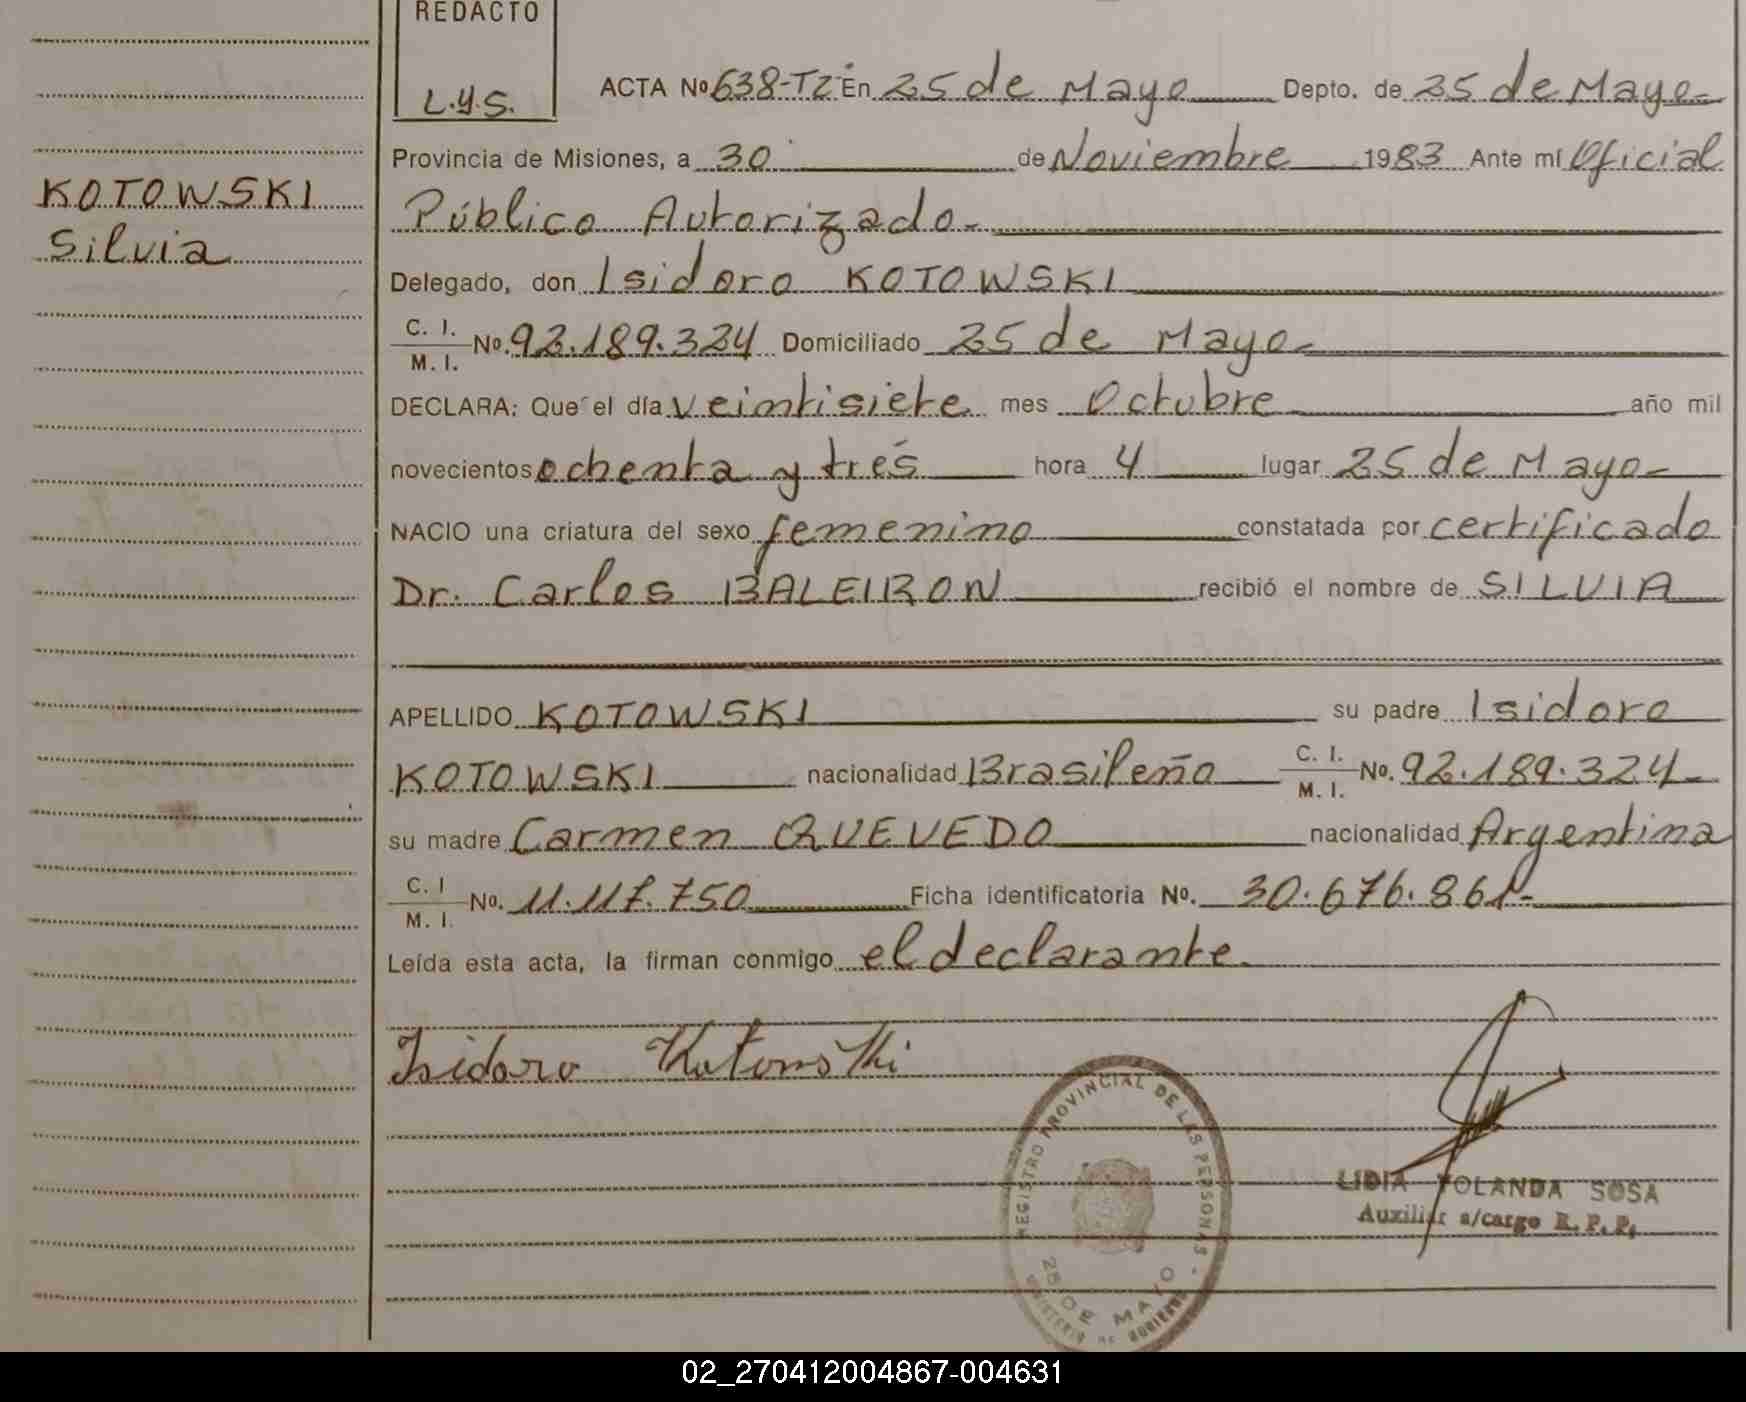 REDACTO
L.Y.S.
KOTOWSKI
Silvia
ACTA Nº 638-T2- En 25 de Mayo Depto. de 25 de Mayo-
Provincia de Misiones, a 30 de Noviembre 1983 Ante mí Oficial
Público Autorizado-
Delegado, don Isidoro KOTOWSKI
C. I. / M. I. Nº. 92.189.324 Domiciliado 25 de Mayo-
DECLARA: Que el día veintisiete mes Octubre año mil
novecientos ochenta y trés hora 4 lugar 25 de Mayo-
NACIO una criatura del sexo femenino constatada por certificado
Dr. Carlos BALEIRON recibió el nombre de SILVIA
APELLIDO KOTOWSKI su padre Isidoro
KOTOWSKI nacionalidad Brasileño C. I. / M. I. Nº. 92.189.324-
su madre Carmen QUEVEDO nacionalidad Argentina
C. I / M. I. Nº. 11.117.750 Ficha identificatoria Nº. 30.676.861-
Leída esta acta, la firman conmigo el declarante.
Isidoro Kotowski
REGISTRO PROVINCIAL DE LAS PERSONAS -
25 DE MAYO
MINISTERIO DE GOBIERNO
LIDIA YOLANDA SOSA
Auxiliar a/cargo R. P. P.
02_270412004867-004631